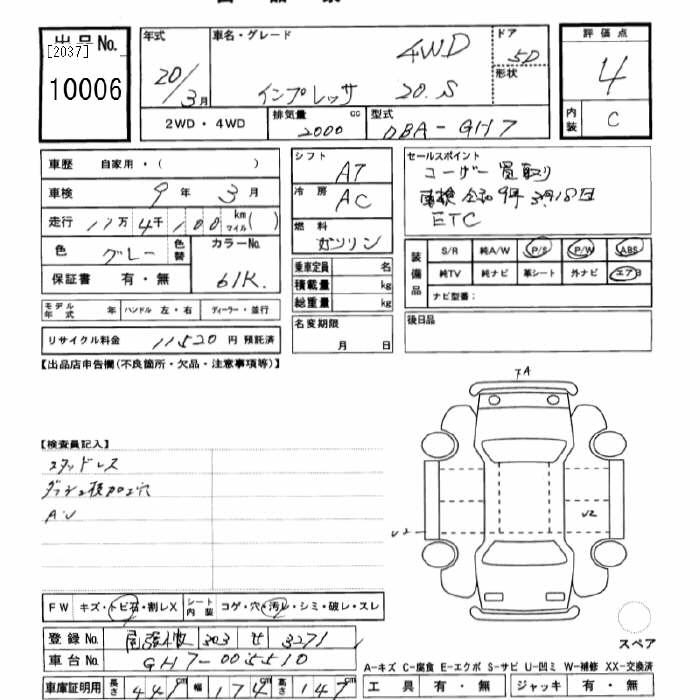 出品No.
[2037]
10006
年式
20/3月
車名・グレード
4WD
インプレッサ 20.S
ドア
5D
形状
評価点
4
内装 C
2WD・4WD
排気量 cc
2000
型式
DBA-GH7
車歴 自家用・( )
車検 9年3月
走行 17万4千100 km マイル( )
色 グレー 色替
カラーNo.
61K.
保証書 有・無
モデル年式 年 ハンドル 左・右 ディーラー・並行
リサイクル料金 11520 円 預託済
シフト AT
冷房 AC
燃料 ガソリン
乗車定員 名
積載量 kg
総重量 kg
名変期限
月 日
セールスポイント
ユーザー買取り
車検 令和9年3月18日
ETC
装備品
S/R 純A/W P/S P/W ABS
純TV 純ナビ 革シート 外ナビ エアB
ナビ型番:
後日品
【出品店申告欄(不良箇所・欠品・注意事項等)】
【検査員記入】
スタッドレス
A・U
F W キズ・トビ石・割レX シート内装 コゲ・穴・汚レ・シミ・破レ・スレ
U2
U2
スペア
登録No. 尾張小牧 303 せ 3271
車台No. GH7-005510
A-キズ C-腐食 E-エクボ S-サビ U-凹ミ W-補修 XX-交換済
車庫証明用 長さ 441cm 幅 174cm 高さ 147cm
工具 有・無 ジャッキ 有・無